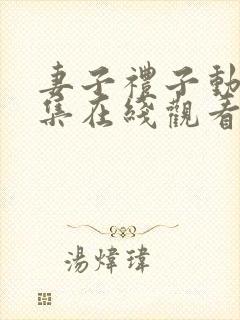 妻子禮子動
集在綫觀看
湯煒瑋